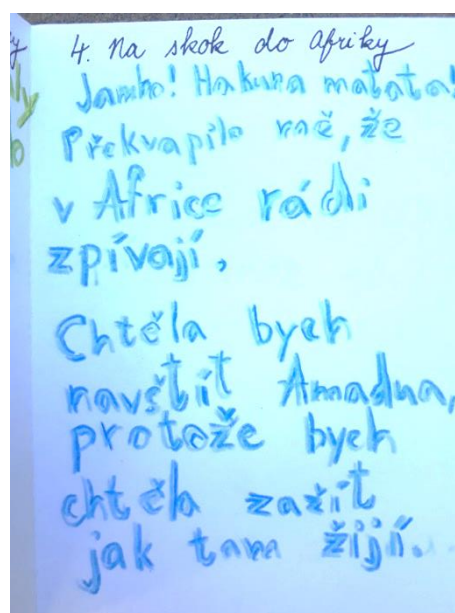 4. Na skok do Afriky
Jambo! Hakuna matata!
Překvapilo mě, že
v Africe rádi
zpívají.
Chtěla bych
navštít Amadua,
protože bych
chtěla zažít
jak tam žijí.